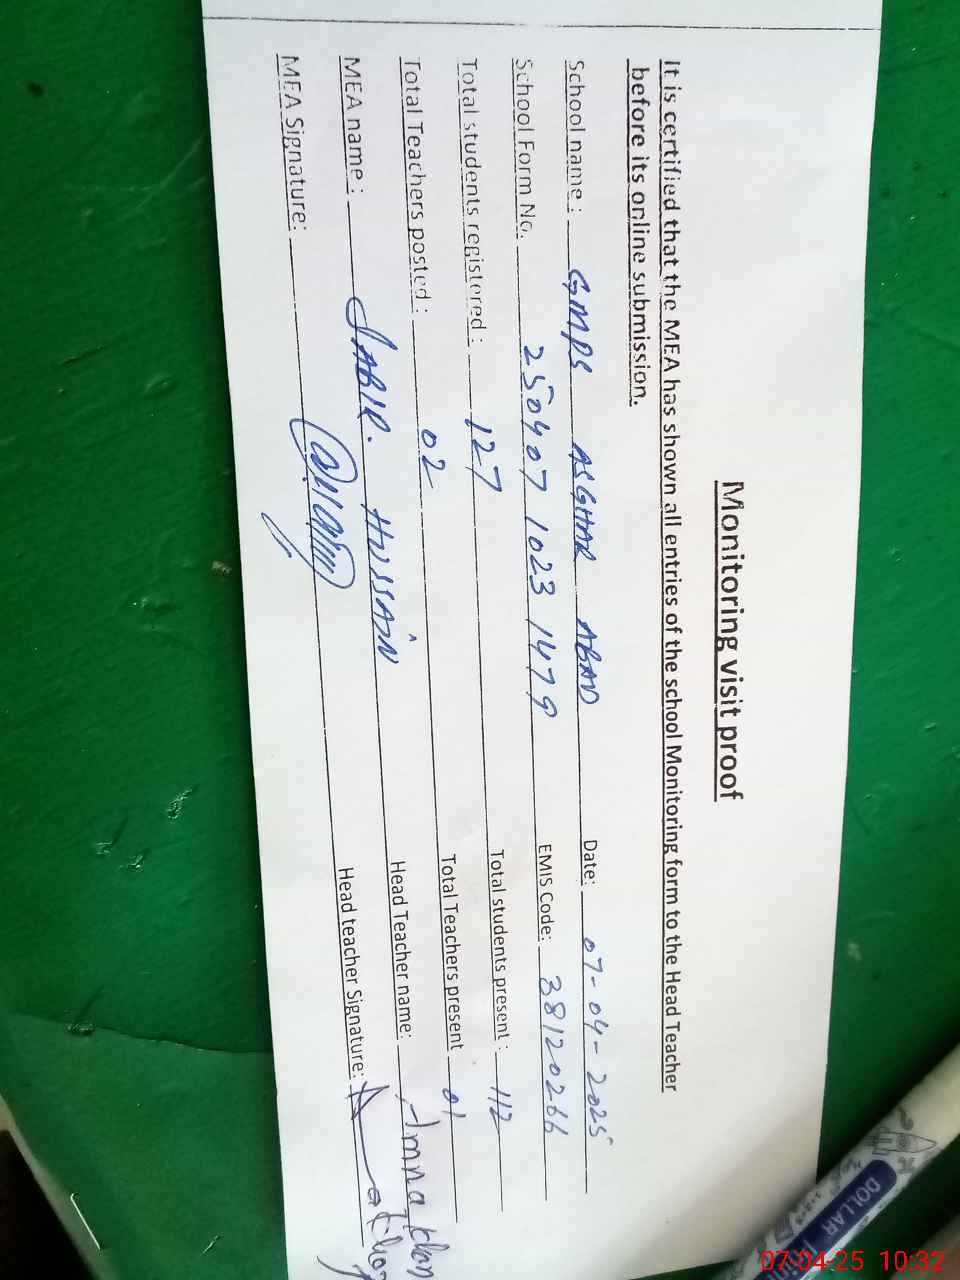 Monitoring visit proof
It is certified that the MEA has shown all entries of the school Monitoring form to the Head Teacher
before its online submission.
School name : GMPS ASGHAR ABAD Date: 07-04-2025
School Form No. 250407 1023 1479 EMIS Code: 38120266
Total students registered : 127 Total students present : 112
Total Teachers posted : 02 Total Teachers present 01
MEA name : JABIR. HUSSAIN Head Teacher name: Amna khan
MEA Signature: Head teacher Signature:
DOLLAR
07-04-25 10:32